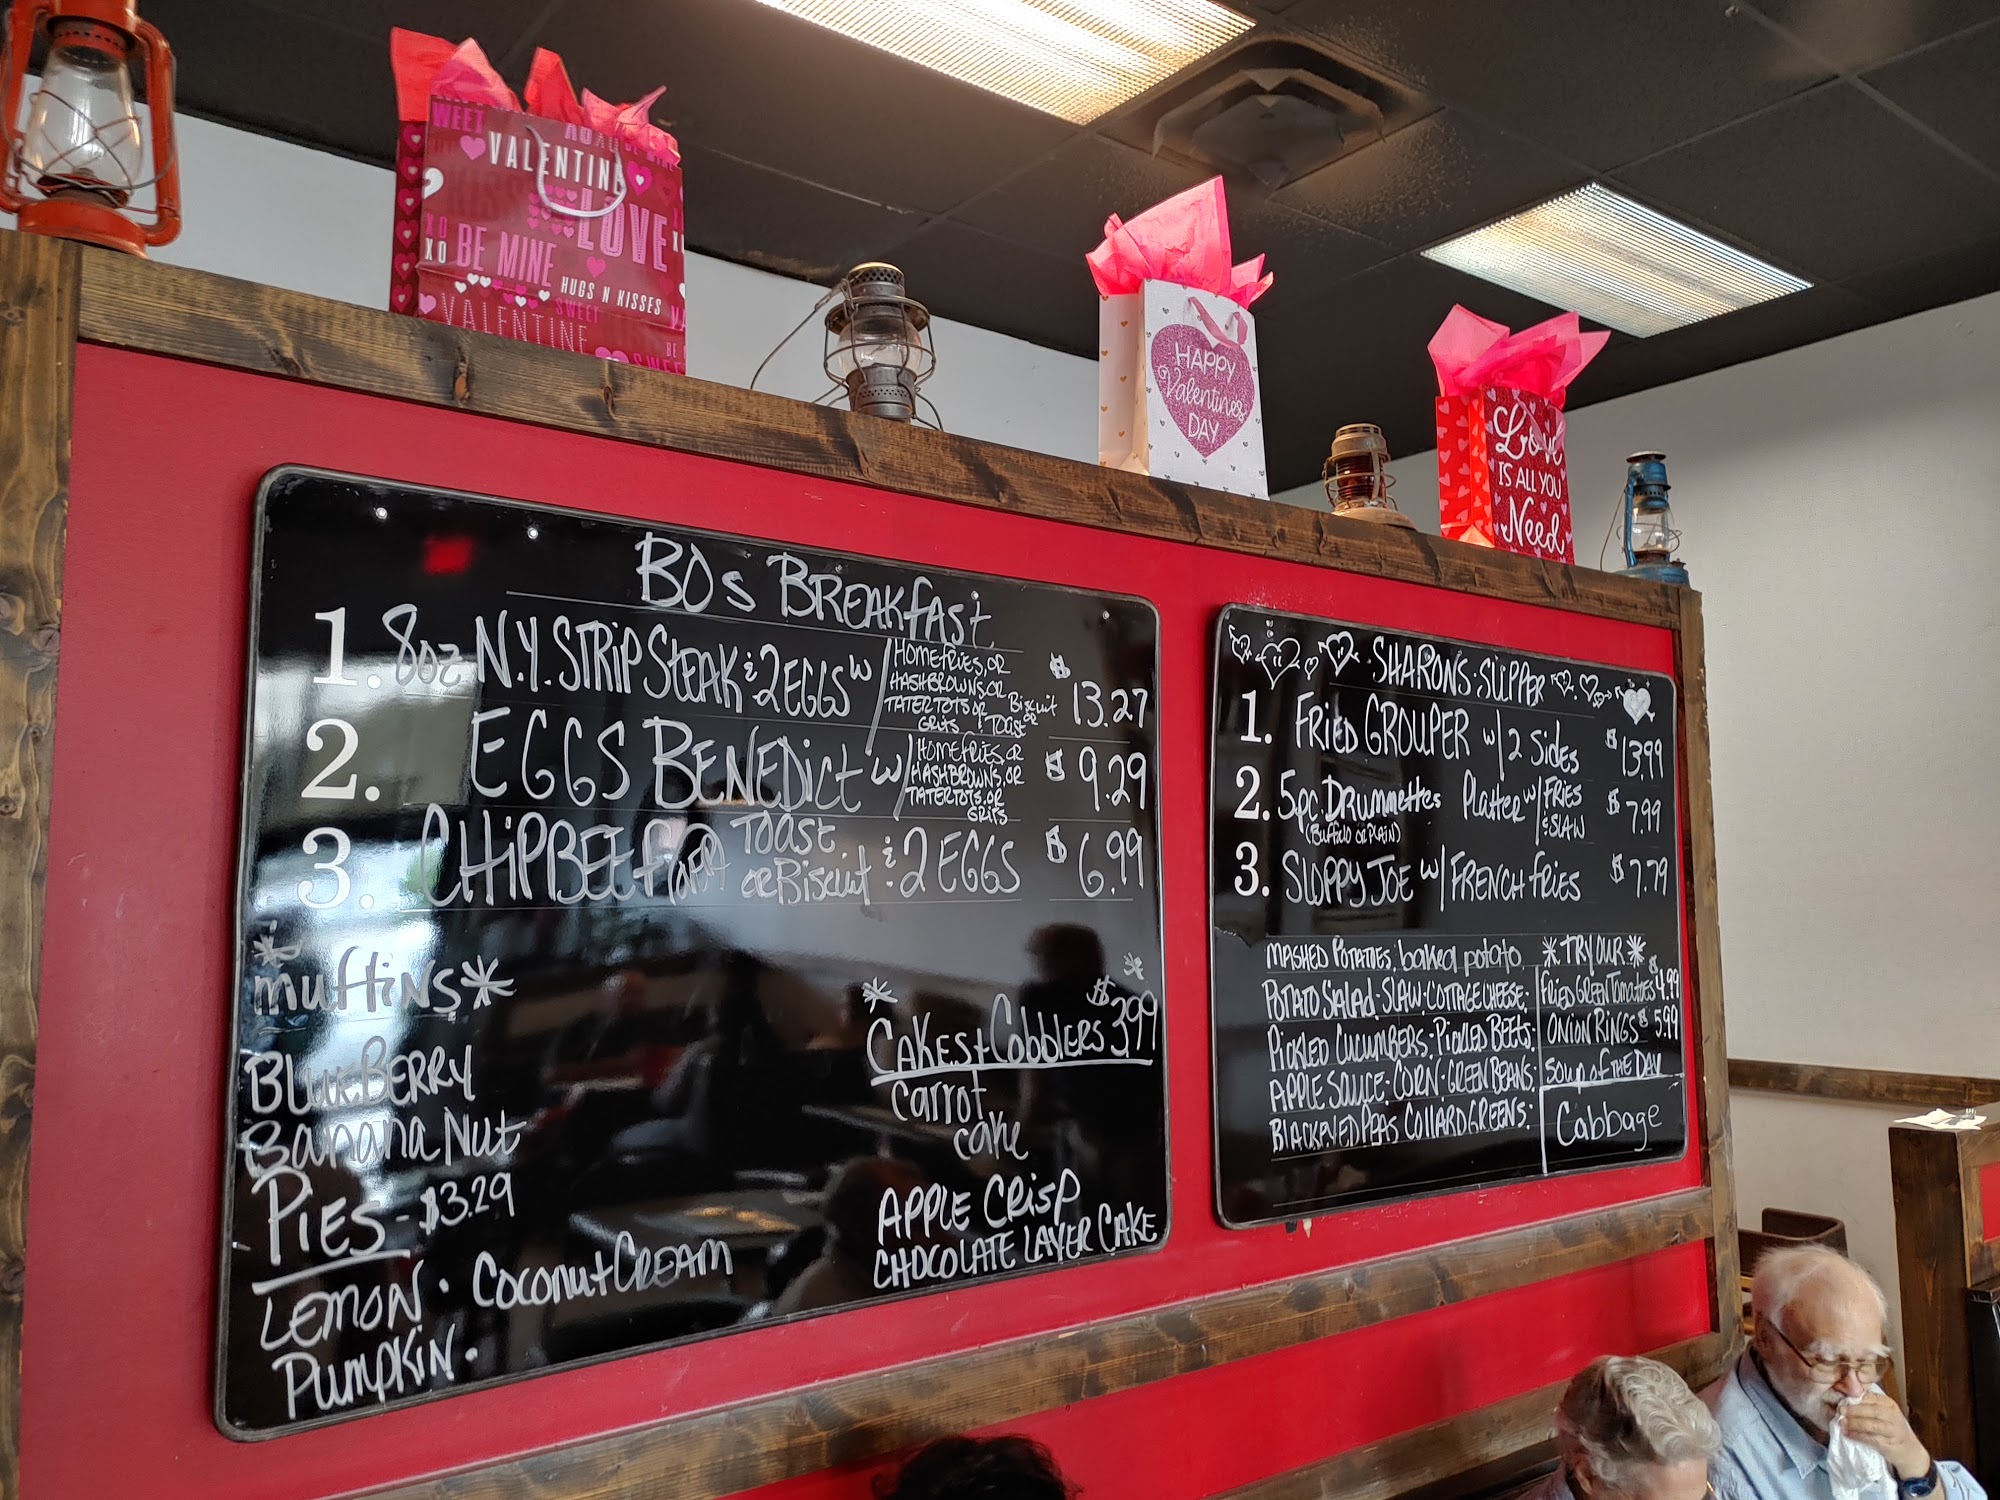 WEET
VALENTINE
LOVE
XO
XO BE MINE
HUGS N KISSES
SWEET
VALENTINE
BE
SWEE
HAPPY
Valentines
DAY
Love
IS ALL YOU
Need
BOs BREAKfASt
1. 8oz N.Y. STRIP STEAK & 2 EGGS w/ HOMEfRIES, OR HASHBROWNS, OR TATERTOTS OR GRITS & Biscuit or TOAST $13.27
2. EGGS BENEDICt w/ HOMEfRIES, OR HASHBROWNS, OR TATERTOTS, OR GRITS $9.29
3. CHIPBEEF TOAST OR Biscuit & 2 EGGS $6.99
* muffins *
BLUEBERRY
Banana Nut
PIES - $3.29
LEMON · Coconut CREAM
PUMPKIN ·
* CAKES + Cobblers $3.99 *
carrot
cake
APPLE CRISP
CHOCOLATE LAYER CAKE
SHARONS · SUPPER
1. FRIED GROUPER w/ 2 Sides $13.99
2. 5pc. DRUMMettes Platter w/ FRIES & SLAW $7.99
(BUffalo OR PLAIN)
3. SLOPPY JOE w/ FRENCH fRIES $7.79
MASHED POTATOES, baked potato
POTATO SALAD · SLAW · COTTAGE CHEESE ·
PICKLED CUCUMBERS · PICKLED BEETS ·
APPLE SAUCE · CORN · GREEN BEANS ·
BLACKEYED PEAS COLLARD GREENS :
* TRY OUR *
fRIED GREEN TOMATOES $4.99
ONION RINGS $5.99
SOUP Of THE DAY
Cabbage